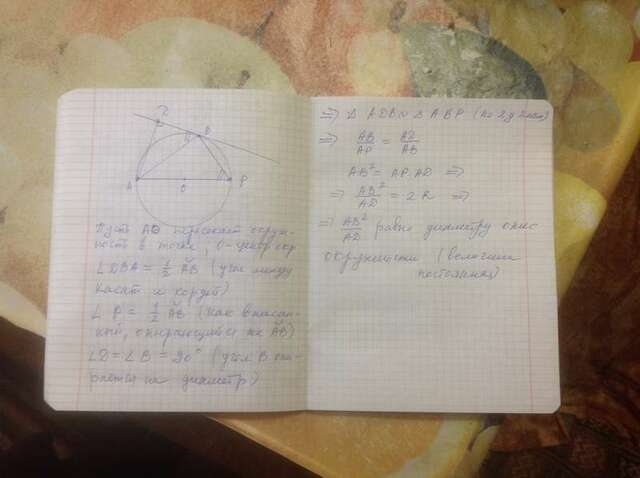 D
B
A
O
P
Пусть AO пересекает окруж-
ность в точке , O - центр окр
∠DBA = 1/2 AB (угол между
касат и хордой)
∠ P = 1/2 AB (как вписан-
ный, опирающийся на AB)
∠D = ∠B = 90° (угол B опи-
рается на диаметр)
⇒ Δ ADB ∾ Δ ABP (по 2 углам)
⇒ AB/AP = AD/AB
AB² = AP · AD ⇒
⇒ AB²/AD = 2R ⇒
⇒ AB²/AD равно диаметру опис
окружности (величина
постоянная)